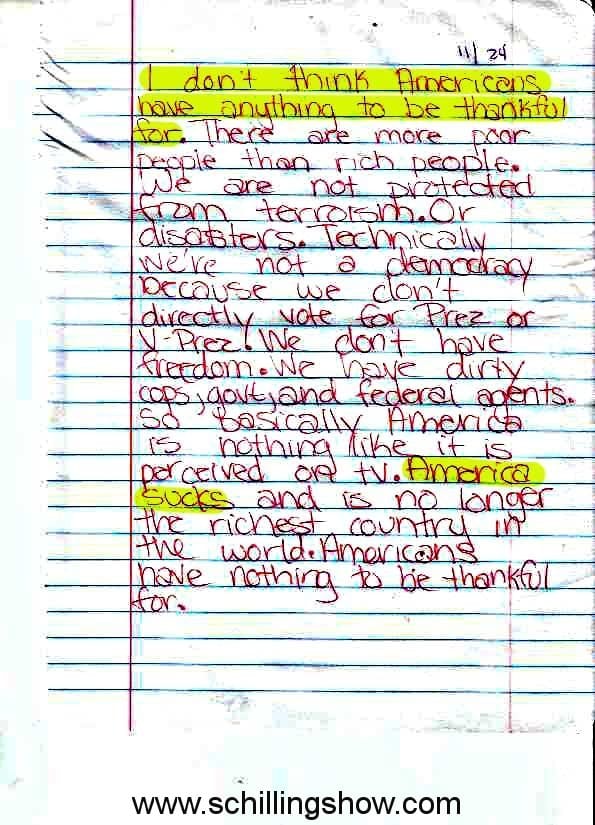 11/24
I don't think Americans
have anything to be thankful
for. There are more poor
people than rich people.
We are not protected
from terroism. Or
disasters. Technically
we're not a democracy
because we don't
directly vote for Prez or
V-Prez. We don't have
freedom. We have dirty
cops, govt, and federal agents.
So basically America
is nothing like it is
perceived on tv. America
sucks and is no longer
the richest country in
the world. Americans
have nothing to be thankful
for.
www.schillingshow.com